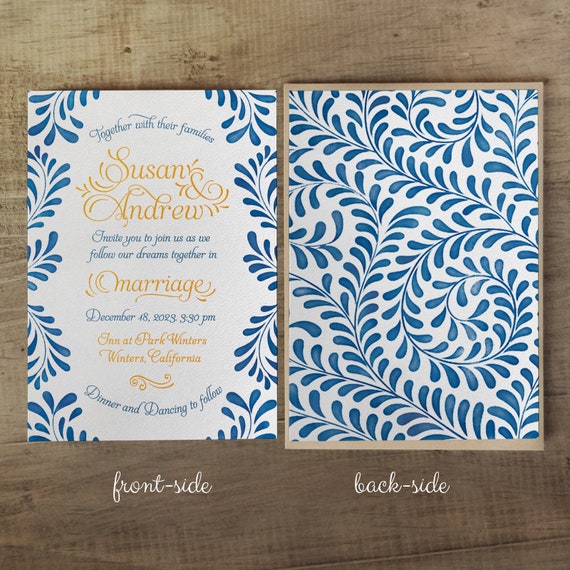 Together with their families
Susan &
Andrew
Invite you to join us as we
follow our dreams together in
marriage
December 18, 2023, 3:30 pm
Inn at Park Winters
Winters, California
Dinner and Dancing to follow
front-side
back-side